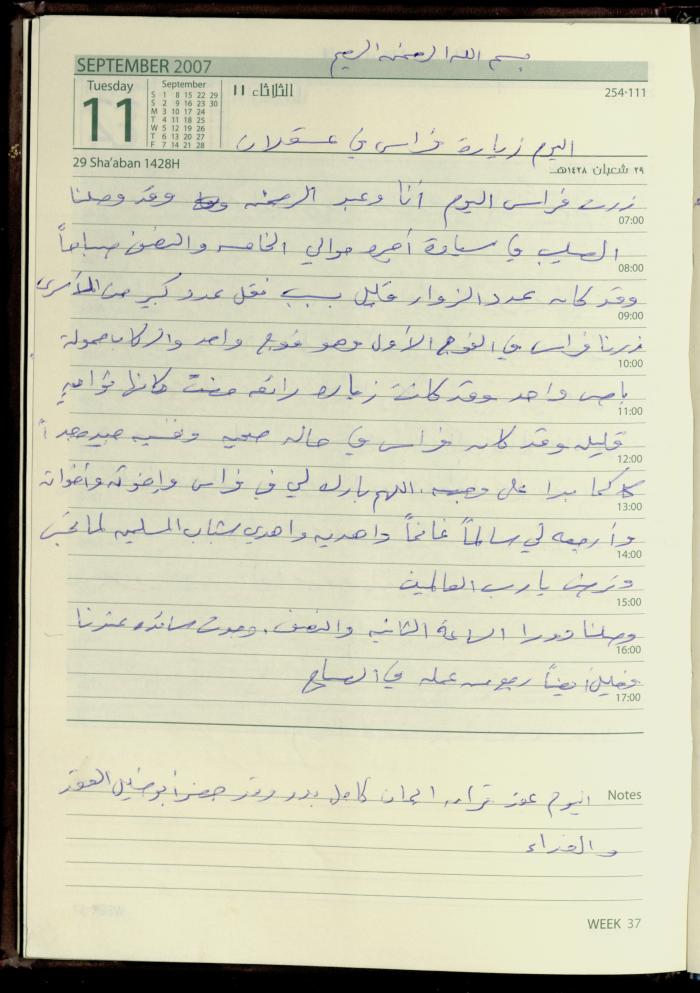 بسم الله الرحمن الرحيم
SEPTEMBER 2007
Tuesday
11
September
S 1 8 15 22 29
S 2 9 16 23 30
M 3 10 17 24
T 4 11 18 25
W 5 12 19 26
T 6 13 20 27
F 7 14 21 28
الثلاثاء ١١
254-111
اليوم زيارة فراس في عسقلان
29 Sha'aban 1428H
٢٩ شعبان ١٤٢٨هـ
زرت فراس اليوم أنا وعبد الرحمن وقد وصلنا
07:00
الصليب في سيارة أجرة حوالي الخامسة والنصف صباحاً
08:00
وقد كان عدد الزوار قليل بسبب نقل عدد كبير من الأسرى
09:00
زرنا فراس في الفوج الأول وهو فوج واحد والركاب حمولة
10:00
باص واحد وقد كانت زيارة رائعة مضت كأنها ثواني
11:00
قليلة وقد كان فراس في حالة صحية ونفسية جيدة جداً
12:00
كما بدا على وجهه. اللهم بارك لي في فراس وإخوته وأخواته
13:00
وأرجعه لي سالماً غانماً واهديه واهدي شباب المسلمين لما تحب
14:00
وترضى يا رب العالمين
15:00
وصلنا دورا الساعة الثانية والنصف. وجدت عندنا
16:00
وخليل أيضاً رجع من عمله في الصباح
17:00
Notes
اليوم عقد قران كامل بدر وقد حضر أبو خليل العقد
والغداء
WEEK 37